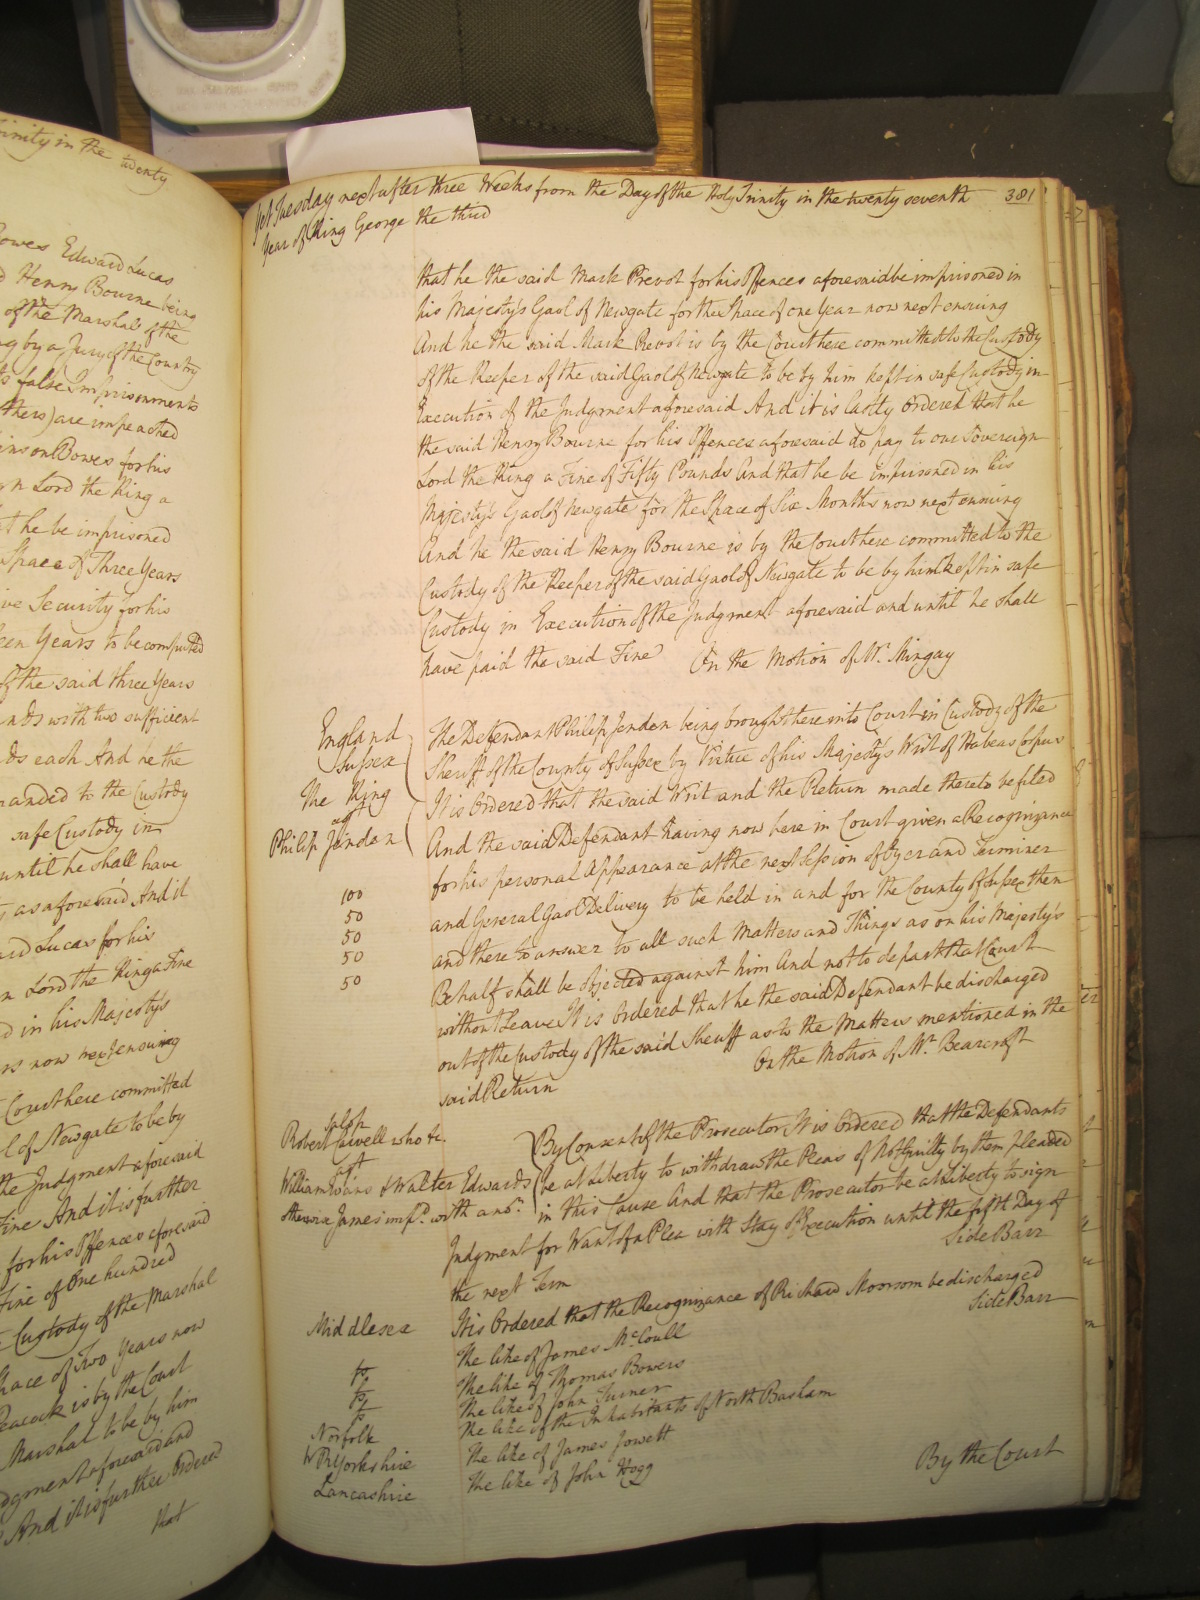 Trinity in the twenty
Bowes Edward Lucas
Henry Bourne being
of the Marshal of the
by a Jury of the Country
false Imprisonments
thers) are impeached
Bowes for his
Lord the King a
he be imprisoned
Space of Three Years
Security for his
Years to be computed
of the said three Years
with two sufficient
each And he the
to the Custody
safe Custody in
until he shall have
as aforesaid And it
Lucas for his
Lord the King a Fine
in his Majesty's
now next ensuing
Court here committed
of Newgate to be by
the Judgment aforesaid
Fine And it is further
for his Offences aforesaid
Fine of One hundred
Custody of the Marshal
Space of Two Years now
Peacock is by the Court
Marshal to be by him
Judgment aforesaid and
And it is further Ordered
that
Yet Tuesday next after three Weeks from the Day of the Holy Trinity in the twenty seventh 381
Year of King George the third
that he the said Mark Prevot for his Offences aforesaid be imprisoned in
his Majesty's Gaol of Newgate for the Space of one Year now next ensuing
And he the said Mark Prevot is by the Court here committed to the Custody
of the Keeper of the said Gaol of Newgate to be by him kept in safe Custody in
Execution of the Judgment aforesaid And it is lastly Ordered that he
the said Henry Bourne for his Offences aforesaid do pay to our Sovereign
Lord the King a Fine of Fifty Pounds And that he be imprisoned in his
Majesty's Gaol of Newgate for the Space of Six Months now next ensuing
And he the said Henry Bourne is by the Court here committed to the
Custody of the Keeper of the said Gaol of Newgate to be by him kept in safe
Custody in Execution of the Judgment aforesaid and until he shall
have paid the said Fine On the Motion of Mr. Mingay
England
Sussex
The King
agt
Philip Jenden
100
50
50
50
50
The Defendant Philip Jenden being brought here into Court in Custody of the
Sheriff of the County of Sussex by Virtue of his Majesty's Writ of Habeas Corpus
It is Ordered that the said Writ and the Return made thereto be filed
And the said Defendant having now here in Court given a Recognizance
for his personal Appearance at the next Session of Oyer and Terminer
and General Gaol Delivery to be held in and for the County of Sussex then
and there to answer to all such Matters and Things as on his Majesty's
Behalf shall be objected against him And not to depart that Court
without Leave It is Ordered that he the said Defendant be discharged
out of the Custody of the said Sheriff as to the Matters mentioned in the
said Return On the Motion of Mr. Bearcroft
Salop
Robert who &c.
agt
William Evans & Walter Edwards
otherwise James impd. with anor.
By Consent of the Prosecutor It is Ordered that the Defendants
be at Liberty to withdraw the Pleas of Not Guilty by them pleaded
in this Cause And that the Prosecutor be at Liberty to sign
Judgment for Want of a Plea with Stay of Execution until the fifth Day of
the next Term Side Barr
Middlesex It is Ordered that the Recognizance of Richard Moorsom be discharged
Side Barr
The like of James McCoull
to The like of Thomas Bowers
to The like of John Turner
to The like of the Inhabitants of North Basham
Norfolk
W R Yorkshire The like of James Jowett
Lancashire The like of John Hogg
By the Court